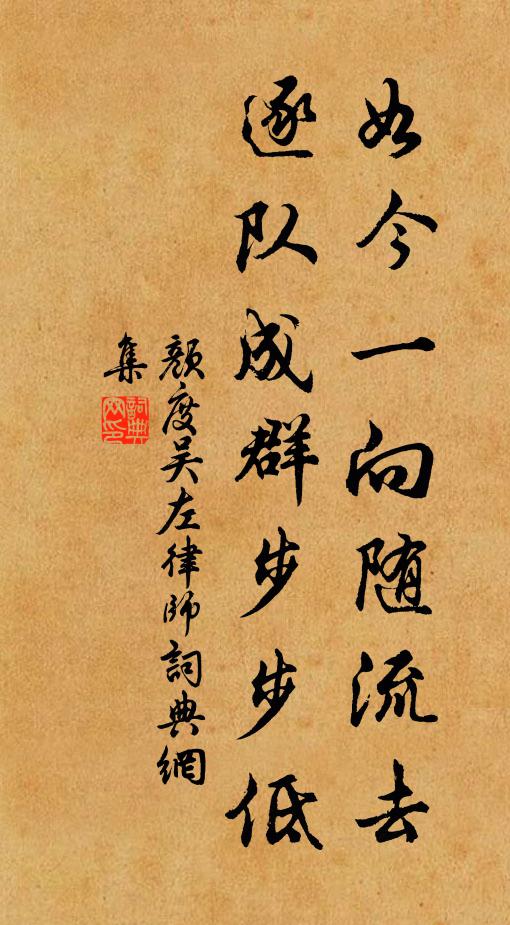 如今一向随流去
逐队成群步步低
颜度吴左律師詞典網
集
詞典网印